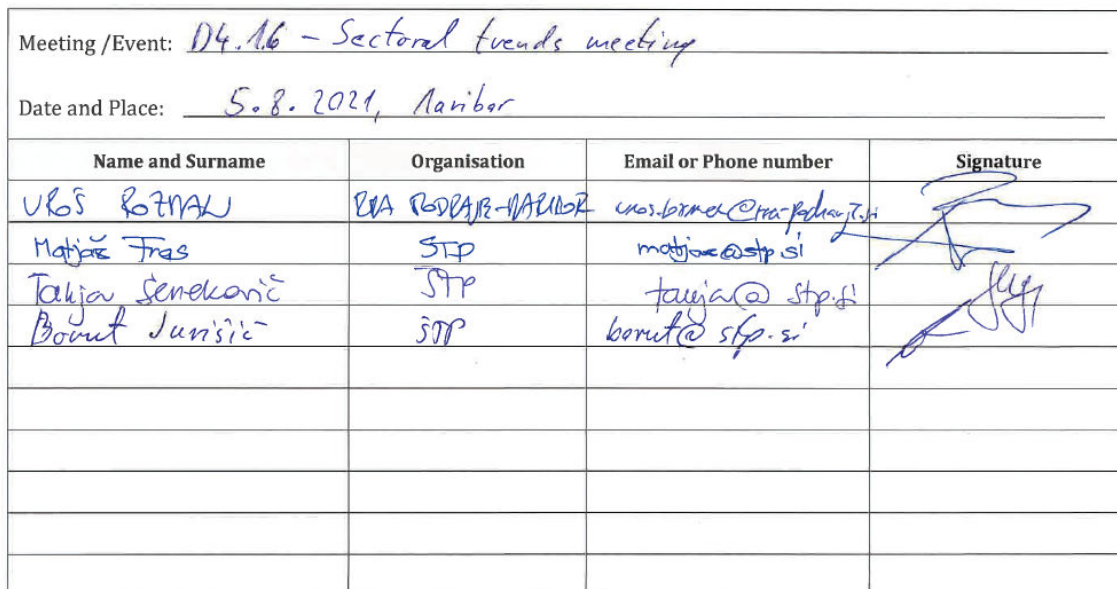 Meeting /Event: D4.1.6 - Sectoral trends meeting
Date and Place: 5.8. 2021, Maribor
Name and Surname Organisation Email or Phone number Signature
UROŠ ROZMAN RRA PODRAVJE-MARIBOR
Matjaž Fras ŠTP matjaz@stp.si
Tanja Senekovič ŠTP tanja@stp.si
Borut Jurišič ŠTP borut@stp.si